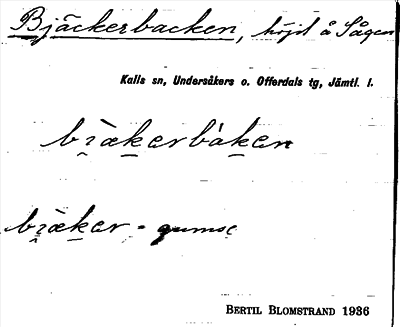 Bjäckerbacken, höjd å Sågen
Kalls sn, Undersåkers o. Offerdals tg, Jämtl. l.
bi̯æ̀kerbàken
bi̯æ̀ker = gumse
BERTIL BLOMSTRAND 1936